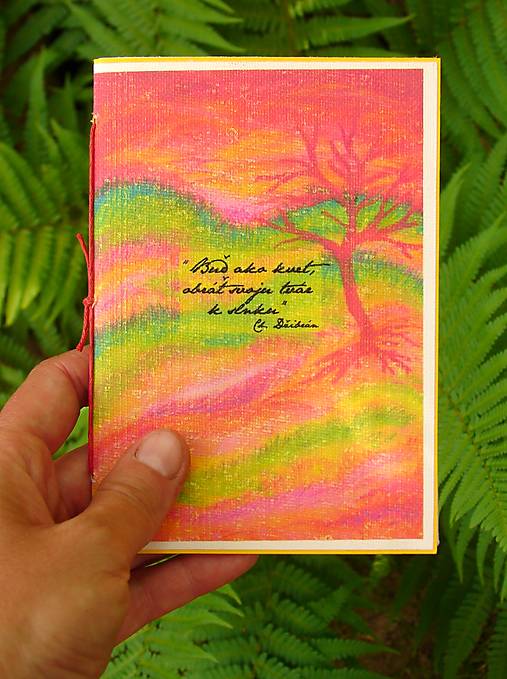 "Buď ako kvet,
obráť svoju tvár
k slnku"
Ch. Džibrán